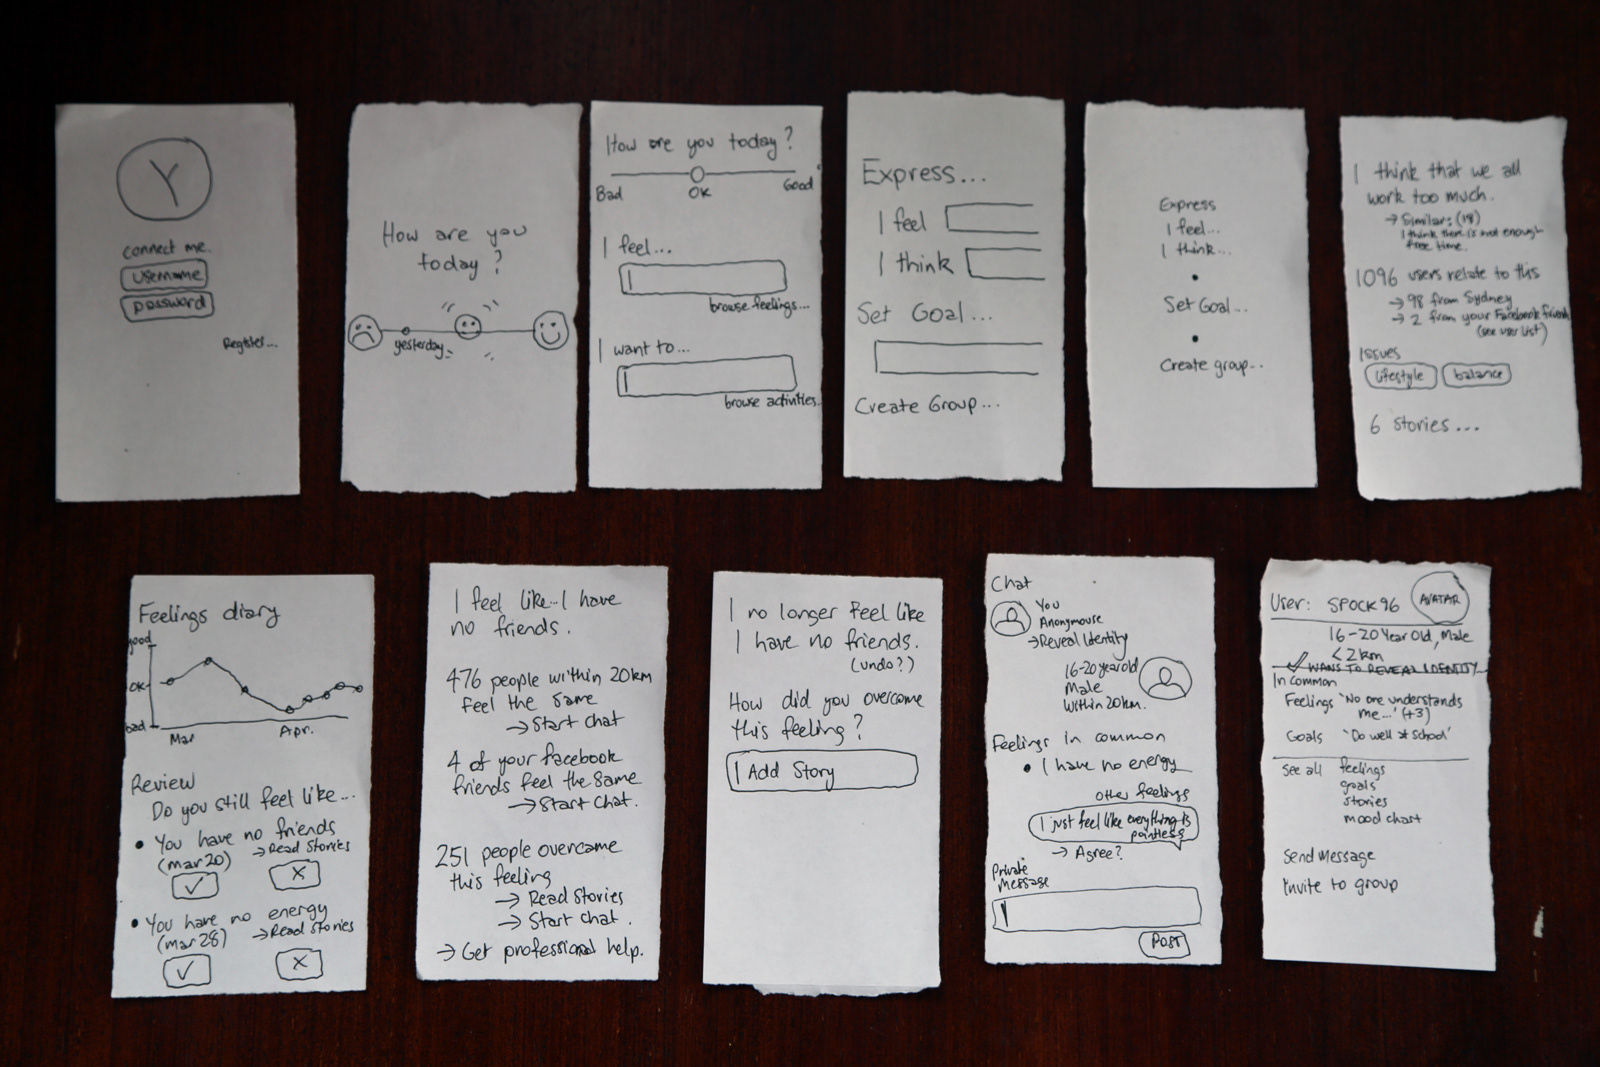 Y
connect me.
username
password
Register...
How are you
today?
yesterday
How are you today?
Bad
OK
Good
I feel...
browse feelings...
I want to...
browse activities..
Express...
I feel
I think
Set Goal...
Create Group...
Express
I feel...
I think...
Set Goal...
Create group...
I think that we all
work too much.
→ Similar: (18)
I think there is not enough
free time.
1096 users relate to this
→ 98 from Sydney
→ 2 from your Facebook friends
(see user list)
Issues
lifestyle
balance
6 stories...
Feelings diary
good
OK
bad
Mar
Apr.
Review
Do you still feel like...
• You have no friends
(mar 20) → Read Stories
✓ X
• You have no energy
(mar 28) → Read Stories
✓ X
I feel like..I have
no friends.
476 people within 20km
feel the same
→ Start chat
4 of your facebook
friends feel the same
→ Start chat.
251 people overcame
this feeling
→ Read Stories
→ Start chat.
→ Get professional help.
I no longer feel like
I have no friends.
(undo?)
How did you overcome
this feeling?
Add Story
Chat
You
Anonymouse
→ Reveal Identity
16-20 year old
Male
Within 20km.
Feelings in common
• I have no energy
other feelings
I just feel like everything is
pointless
→ Agree?
Private
Message
POST
User: SPOCK96
AVATAR
16-20 Year Old, Male
<2km
✓ WANTS TO REVEAL IDENTITY
In common
Feelings 'No one understands
me...' (+3)
Goals 'Do well at school'
See all feelings
goals
stories
mood chart
Send Message
Invite to group